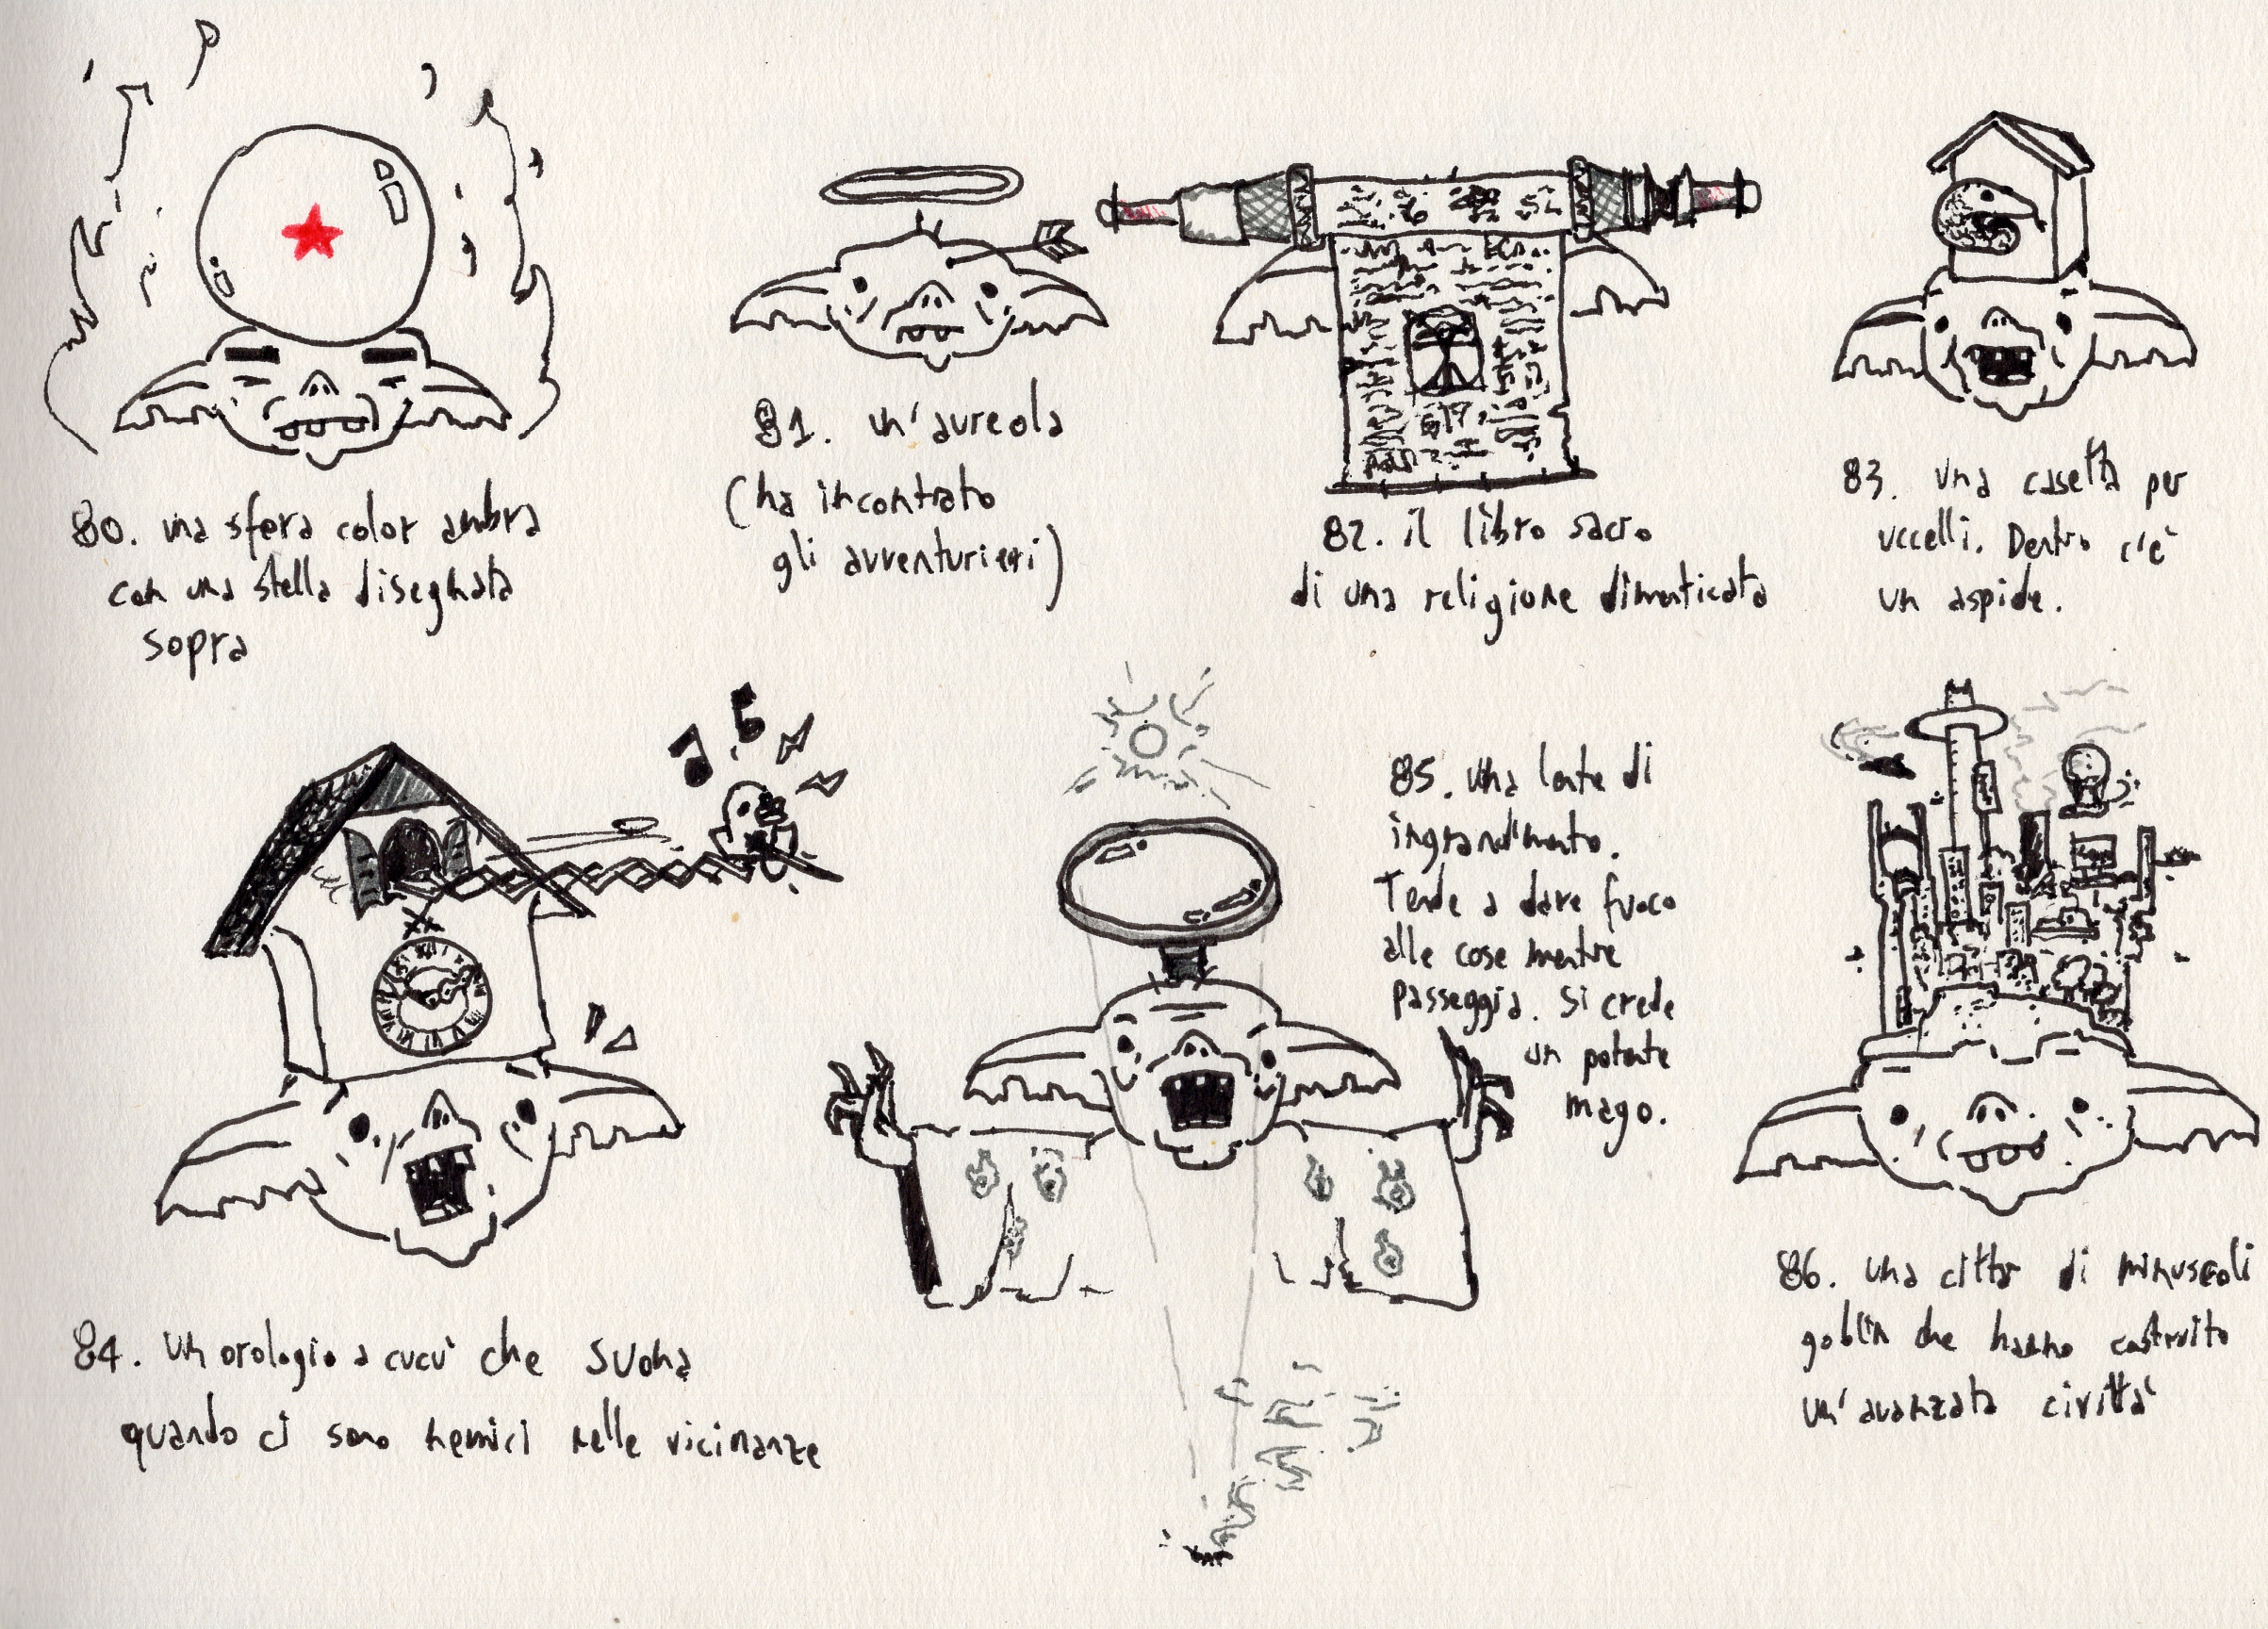 80. una sfera color ambra
con una stella disegnata
sopra
81. un'aureola
(ha incontrato
gli avventurieri)
82. il libro sacro
di una religione dimenticata
83. una casetta per
uccelli. Dentro c'è
un aspide.
84. un orologio a cucù che suona
quando ci sono nemici nelle vicinanze
85. una lente di
ingrandimento.
Tende a dare fuoco
alle cose mentre
passeggia. Si crede
un potente
mago.
86. una città di minuscoli
goblin che hanno costruito
un'avanzata civiltà